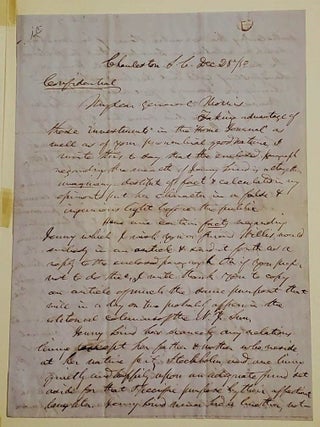 Charleston S.C. Dec 25/50
Confidential
My dear General Morris
Taking advantage of
those "investments" in the Home Journal as
well as of your proverbial good nature I
write this to day, that the enclosed paragraph
regarding the of Jenny Lind is altogether
imaginary, destitute of fact & calculated in my
opinion to put her character in a false &
injurious light before the public
There are certain facts regarding
Jenny which I wish you or friend Willis would
embody in an article & send it forth as a
reply to the enclosed paragraph Or if you prefer
not to do that, I will thank you to copy
an article of much the same purport that
will in a day or two probably appear in the
editorial columns of the N.Y. Sun.
Jenny Lind has scarcely any relations
living except her father & mother who reside
at her native place Stockholm and are living
quietly and happily upon an adequate fund set
aside for that especial purpose by their affectionate
daughter. Jenny Lind never had a brother, nor